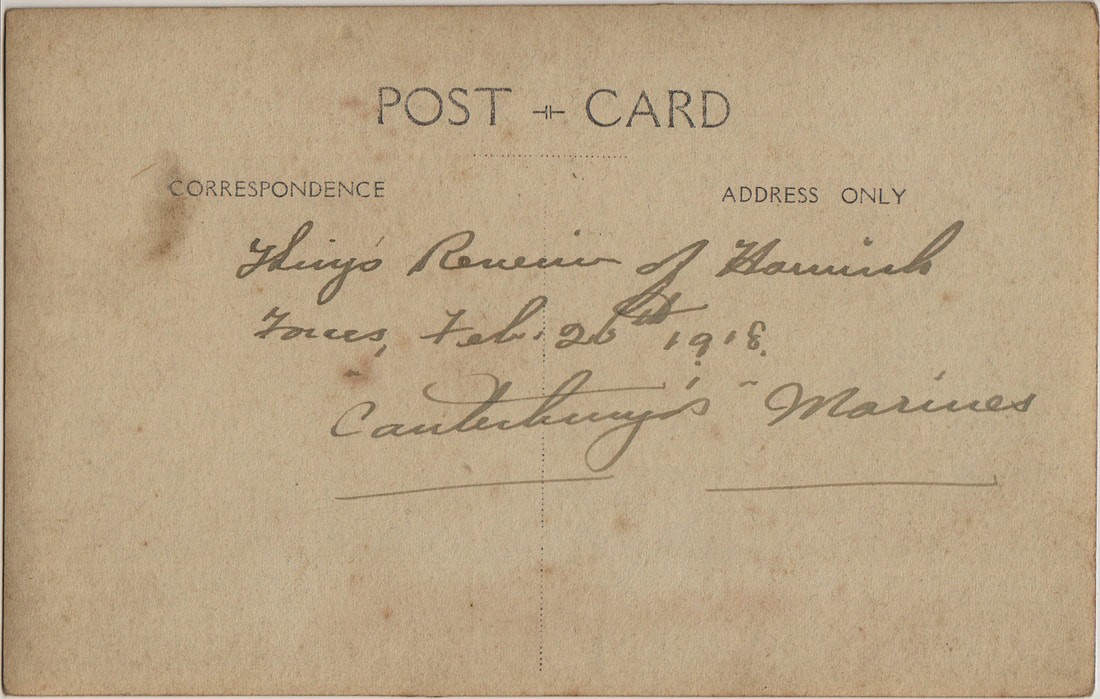 POST CARD
CORRESPONDENCE ADDRESS ONLY
King's Review of Harwich
Forces, Feb. 26th 1918.
"Canterbury's" Marines